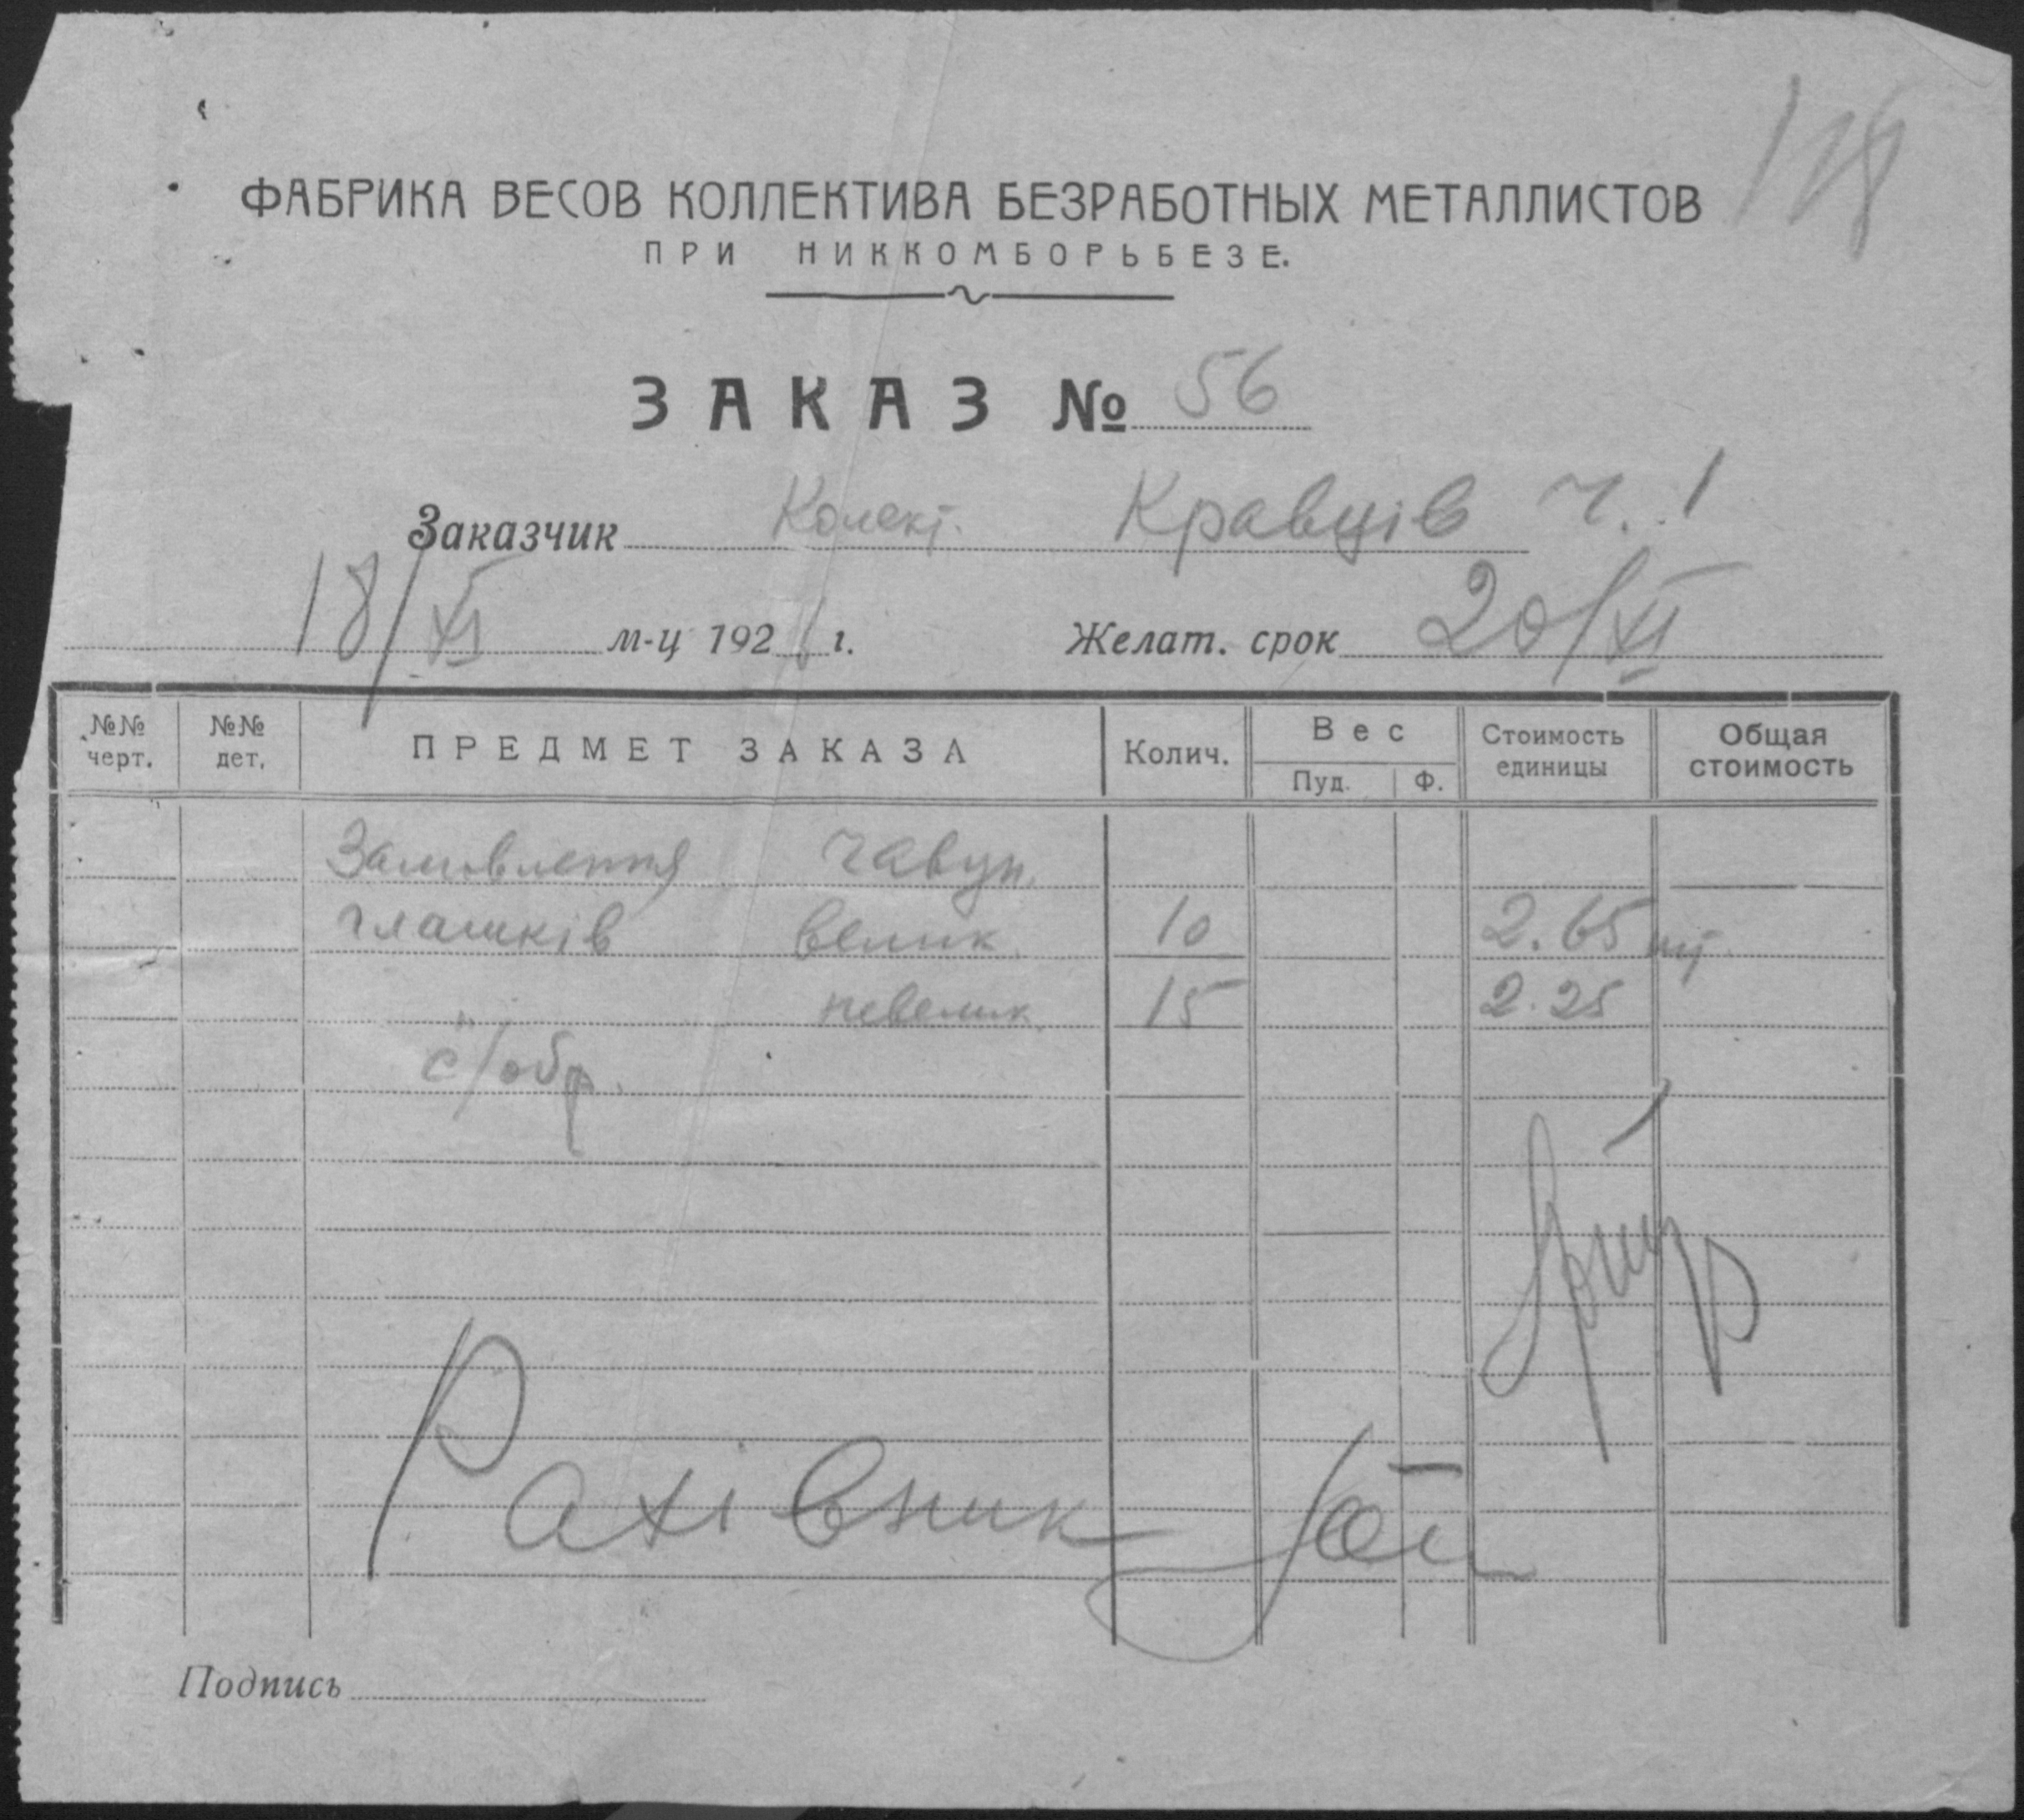 118
ФАБРИКА ВЕСОВ КОЛЛЕКТИВА БЕЗРАБОТНЫХ МЕТАЛЛИСТОВ
ПРИ НИККОМБОРЬБЕЗЕ.
ЗАКАЗ № 56
Заказчик Колект. Кравців ч. 1
18/XI м-ц 192 г. Желат. срок 20/XI
№№ черт. №№ дет. ПРЕДМЕТ ЗАКАЗА Колич. Вес Пуд. Ф. Стоимость единицы Общая стоимость
Замовлення чавун.
велик. 10 2.65 шт.
невелик. 15 2.25
с/обр.
Рахівник
Подпись